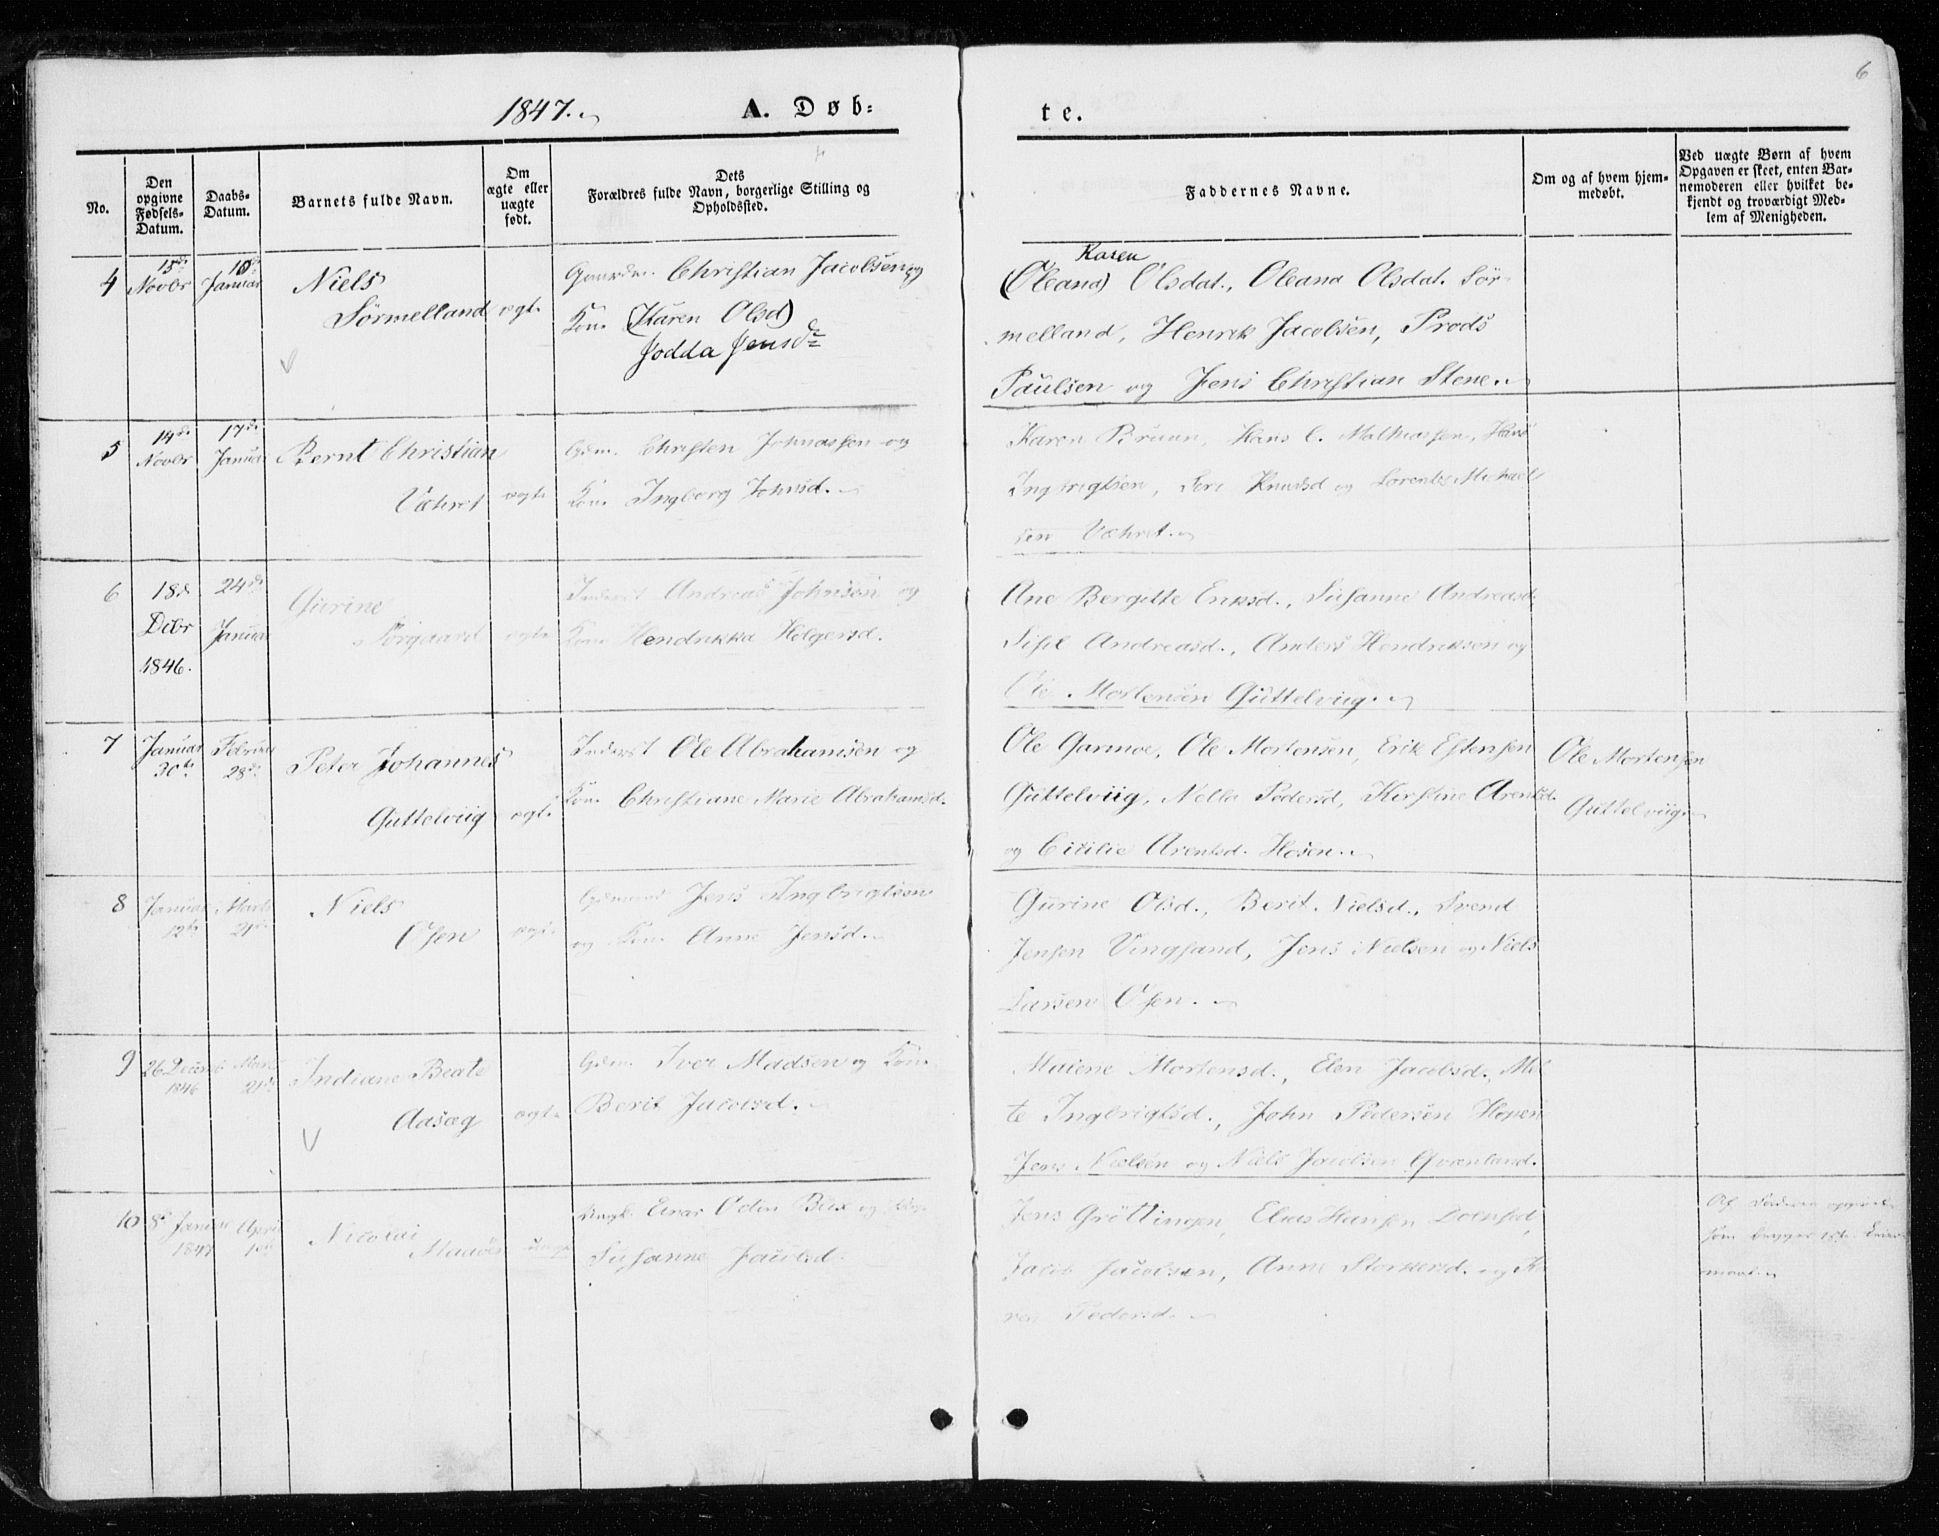 6
1847.
A. Døb:
te.
No.
Den opgivne Fødsels-Datum.
Daabs-Datum.
Barnets fulde Navn.
Om ægte eller uægte født.
Dets Forældres fulde Navn, borgerlige Stilling og Opholdssted.
Faddernes Navne.
Om og af hvem hjem-medøbt.
Ved uægte Børn af hvem Opgaven er skeet, enten Bar-nemoderen eller hvilket be-kjendt og troværdigt Med-lem af Menigheden.
4
15de Novbr
10de Januar
Niels
Sørmelland
ægte
Gaardm. Christian Jacobsen og
Kone (Karen Olsd)
Jodda Jensdr
Karen
(Oleana) Olsdat., Oleana Olsdat. Sør-
melland, Henrik Jacobsen, Prods
Paulsen og Jens Christian Stene.
5
14de Novbr
17de Januar
Bernt Christian
Væhret
ægte
Gdm. Christen Johnassen og
Kone Ingborg Johnsd.
Karen Bruun, Hans C. Mathiassen, Hans
Ingbrigtsen, Knudsd og Lorents Michael
sen Væhret.
6
18de Dcbr 1846.
24de Januar
Gurine
Sørgaard
ægte
Inderst Andreas Johnsen og
Kone Hendrikka Holgersd.
Ane Bergitte Eriksd., Susanne Andreasd.
Sisel Andreasd., Anders Hendriksen og
Ole Mortensen Guttelviig.
7
Januar 30te
Februar 28de
Peter Johannes
Guttelviig
ægte
Inderst Ole Abrahamsen og
Kone Christiane Marie Abrahamsd.
Ole Garmoe, Ole Mortensen, Erik Estensen
Guttelviig, Nella Pedersd, Kirstine Arentsd.
og Cicilie Arentsd. Hosen.
Ole Mortensen
Guttelviig
8
Januar 12te
Marts 21de
Niels
Osen
ægte
Gdmand Jens Ingbrigtsen
og Kone Anne Jensd.
Gurine Olsd., Berit Nielsd., Svend
Jensen Vingsand, Jens Nielsen og Niels
Larsen Osen.
9
26 Decemb 1846
Marts 21de
Indiane Beate
Aasæg
ægte
Gdm. Iver Madsen og Kone
Berit Jacobsd.
Marene Mortensd., Elen Jacobsd., Met
te Ingbrigtsd., John Pedersen Hopen
Jens Nielsen og Niels Jacobsen Qvenland.
10
8de Januar 1847
April
Nicolai
uægte
Ungk. Oden og Pige
Susanne
Jens Grøttingen, Elias Hansen
Jacob Jacobsen, Anne Storkersd. og Ka
ren Pedersd.
Af
som